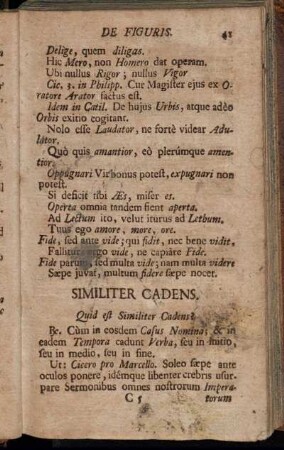 DE FIGURIS. 41
Delige, quem diligas.
Hic Mero, non Homero dat operam.
Ubi nullus Rigor; nullus Vigor
Cic. 3. in Philipp. Cur Magister ejus ex O-
ratore Arator factus est.
Idem in Catil. De hujus Urbis, atque adeò
Orbis exitio cogitant.
Nolo esse Laudator, ne fortè videar Adu-
lator.
Quò quis amantior, eò plerúmque amen-
tior.
Oppugnari Vir bonus potest, expugnari non
potest.
Si deficit tibi Æs, miser es.
Operta omnia tandem fient aperta.
Ad Lectum ito, velut iturus ad Lethum.
Tuus ego amore, more, ore.
Fide, sed ante vide; qui fidit, nec bene vidit,
Fallitur: ergo vide, ne capiare Fide.
Fide parum, sed multa vide; nam multa videre
Sæpe juvat, multum fidere sæpe nocet.
SIMILITER CADENS.
Quid est Similiter Cadens?
Re. Cùm in eosdem Casus Nomina; & in
eadem Tempora cadunt Verba, seu in initio,
seu in medio, seu in fine.
Ut: Cicero pro Marcello. Soleo sæpe ante
oculos ponere, idémque libenter crebris usur-
pare Sermonibus omnes nostrorum Impera-
C 5 torum